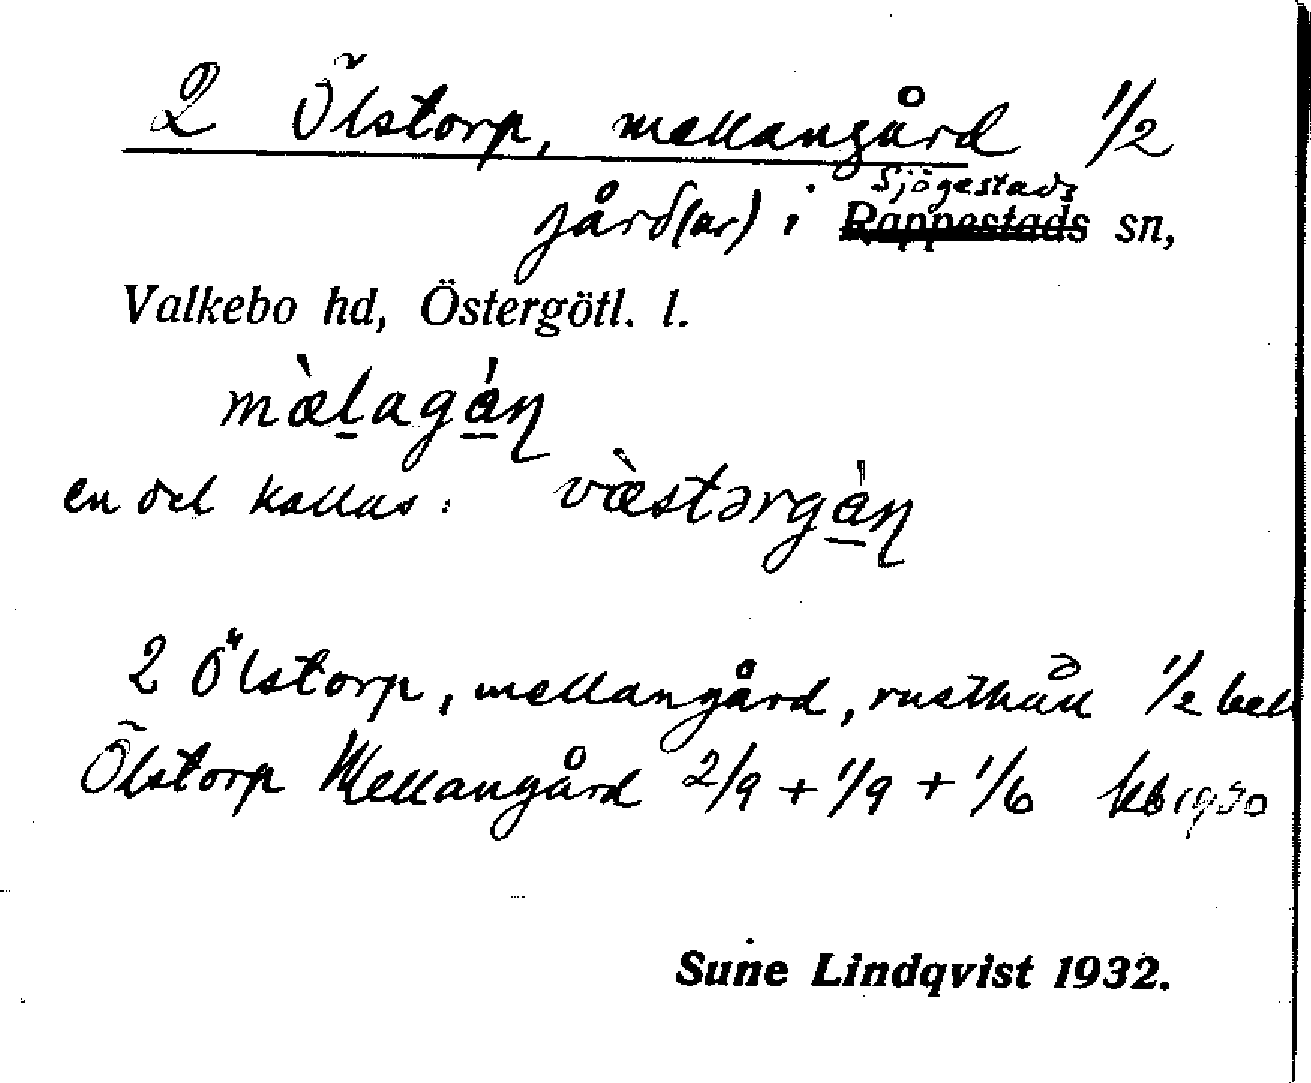 2 Ölstorp, mellangård 1/2
gård(ar) i Sjögestads Rappestads sn,
Valkebo hd, Östergötl. l.
mæ̀lagán
en del kallas: væ̀stərgán
2 Ölstorp, mellangård, rusthåll 1/2 bel
Ölstorp Mellangård 2/9 + 1/9 + 1/6 kb 1930
Sune Lindqvist 1932.